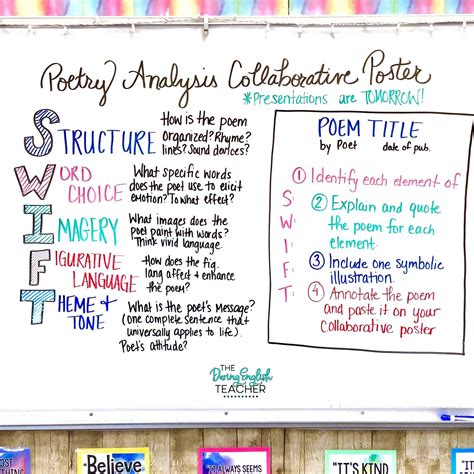 Poetry Analysis Collaborative Poster
*Presentations are TOMORROW!
STRUCTURE
How is the poem
organized? Rhyme?
lines? Sound devices?
WORD
CHOICE
What specific words
does the poet use to elicit
emotion? To what effect?
IMAGERY
What images does the
poet paint with words?
Think vivid language.
FIGURATIVE
LANGUAGE
How does the fig.
lang affect & enhance
the poem?
THEME &
TONE
What is the poet's Message?
(one complete sentence that
universally applies to life).
Poet's attitude?
POEM TITLE
by Poet date of pub.
① Identify each element of
SWIFT:
② Explain and quote
the poem for each
element.
③ Include one symbolic
illustration.
④ Annotate the poem
and paste it on your
Collaborative poster
THE
Daring English
TEACHER
"Believe
"IT ALWAYS SEEMS
"IT'S KIND